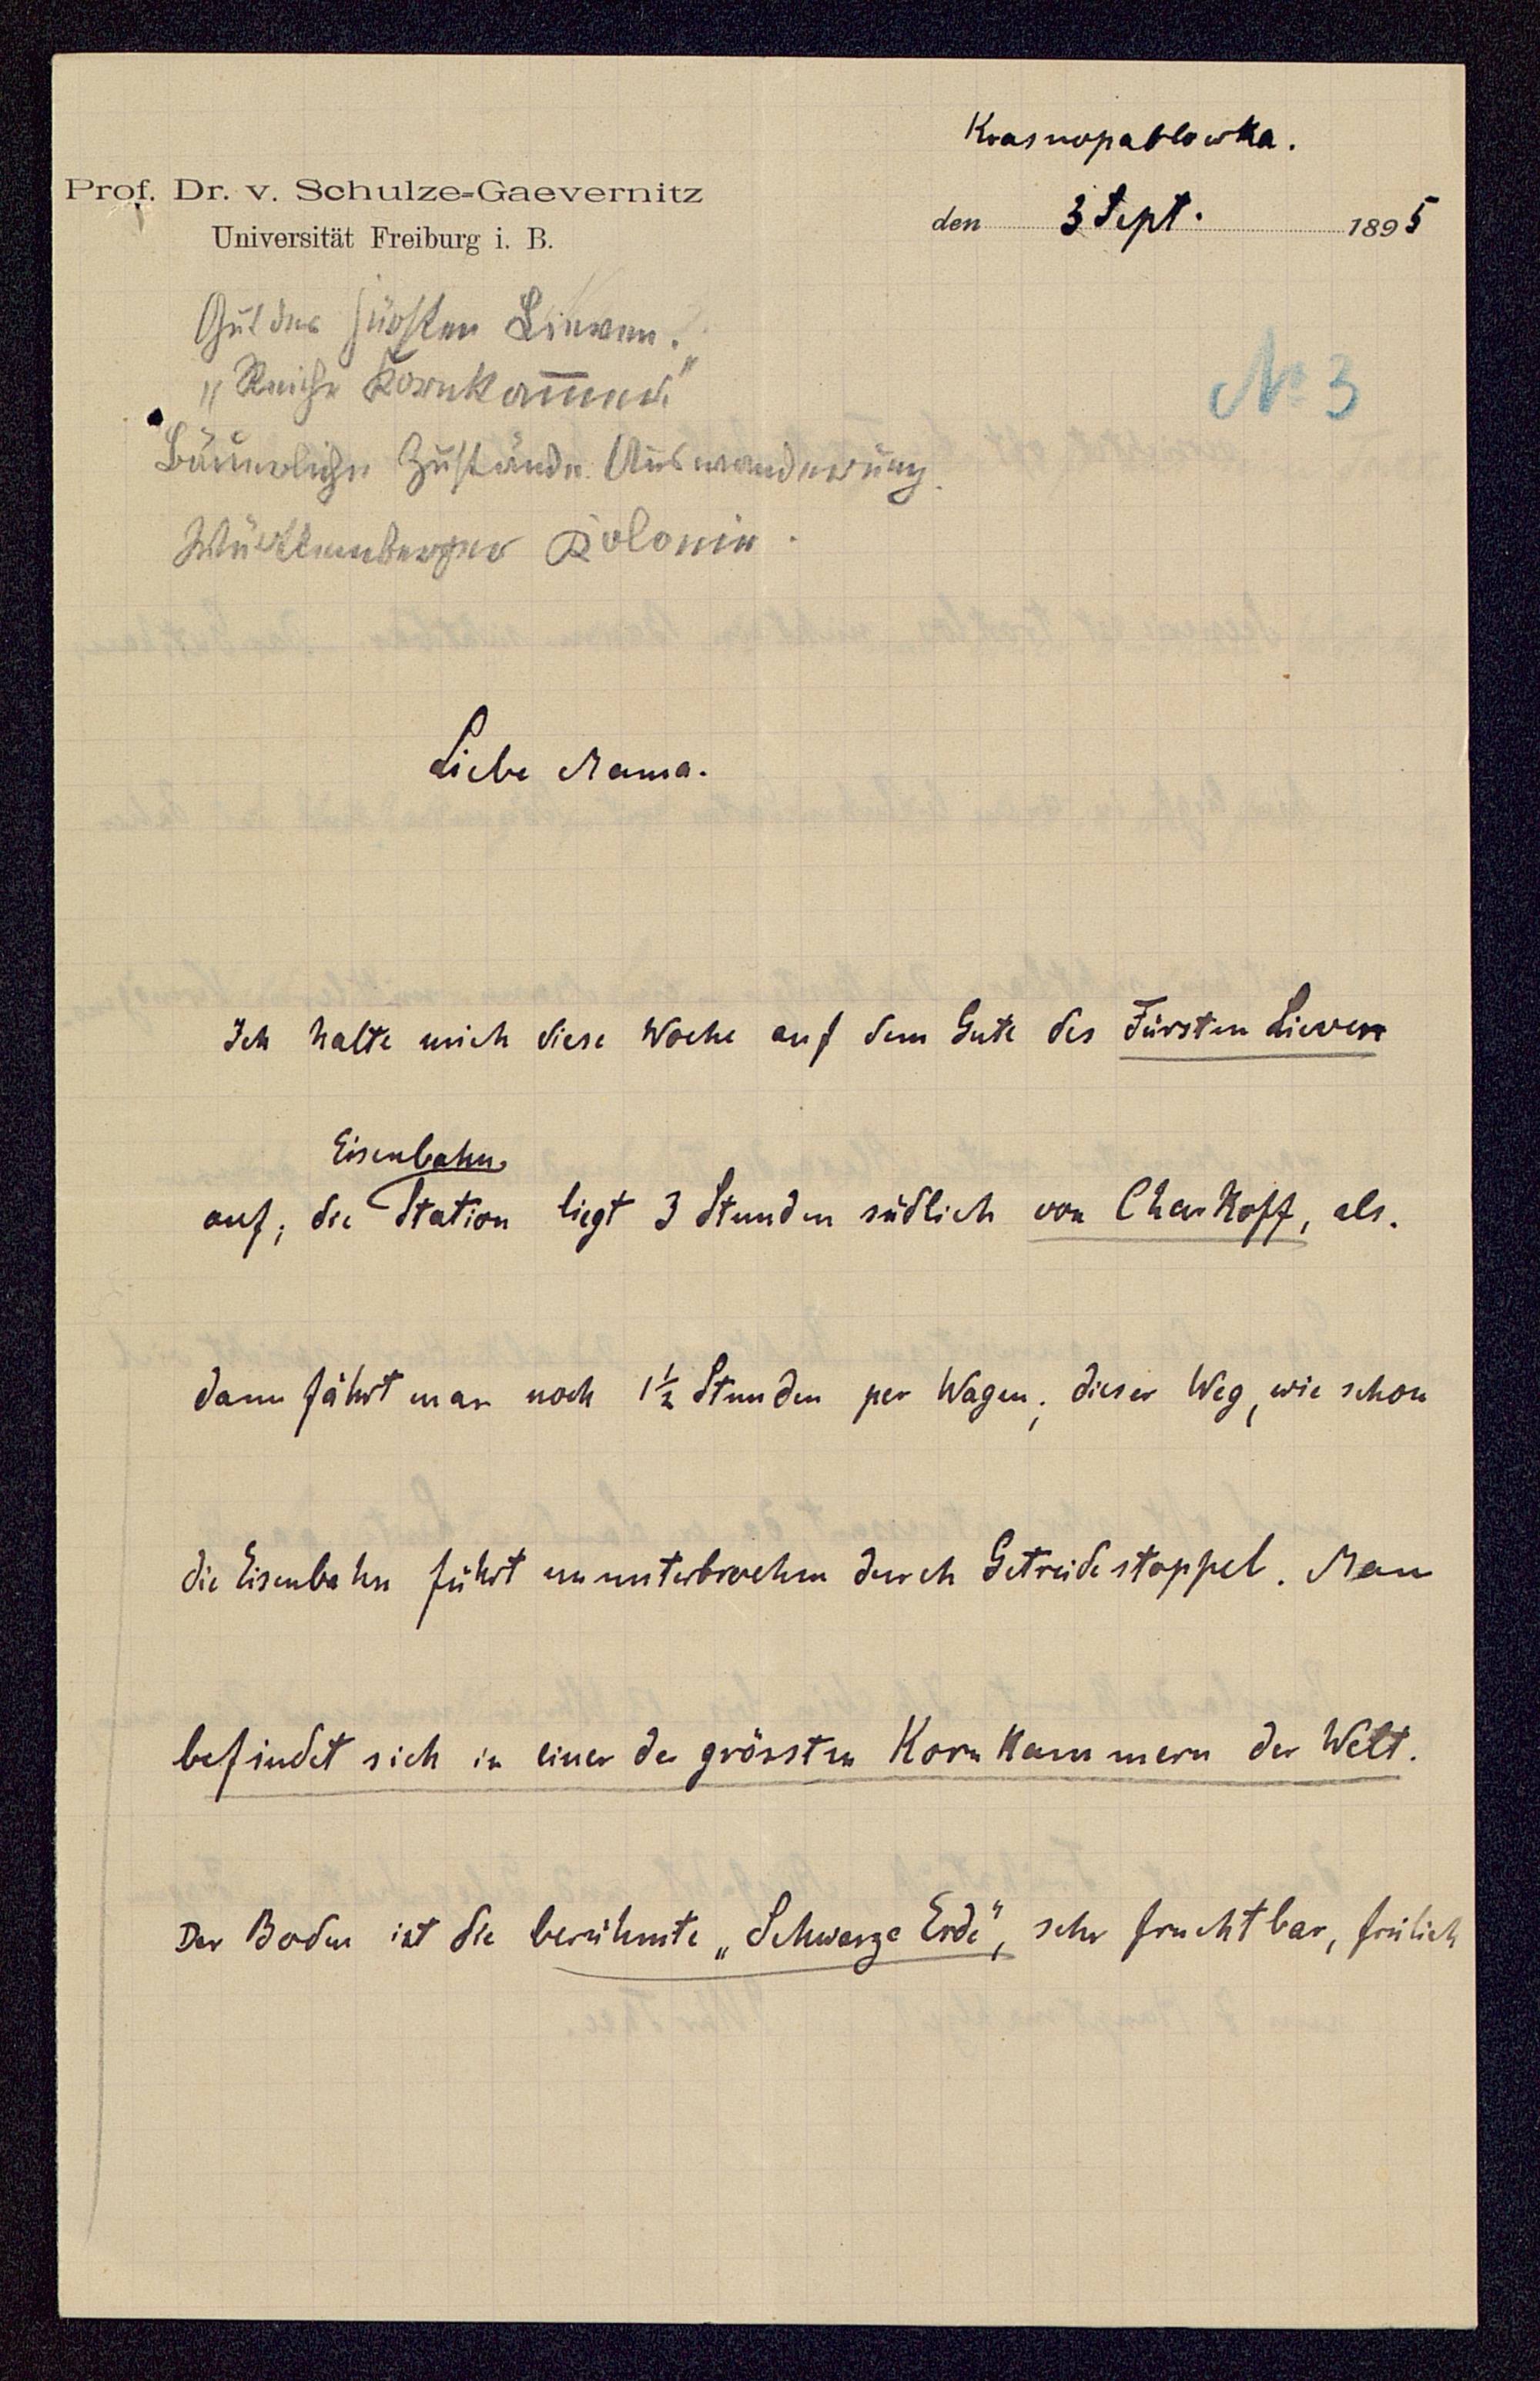 Krasnopablowka.
Prof. Dr. v. Schulze-Gaevernitz
Universität Freiburg i. B.
den 3 Sept. 1895
Gut des Fürsten Liewen.
„Reiche Kornkammer"
No 3
Bäuerliche Zustände. Auswanderung.
Württemberger Kolonie.
Liebe Mama.
Ich halte mich diese Woche auf dem Gute des Fürsten Lieven
Eisenbahn
auf; die Station liegt 3 Stunden südlich von Charkoff, als.
dann fährt man noch 1½ Stunden per Wagen; dieser Weg, wie schon
die Eisenbahn führt ununterbrochen durch Getreidestoppel. Man
befindet sich in einer der grössten Kornkammern der Welt.
Der Boden ist die berühmte „Schwarze Erde", sehr fruchtbar, freilich